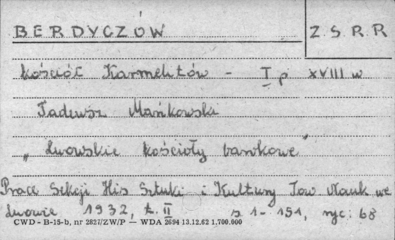 BERDYCZÓW Z.S.R.R
kościół Karmelitów - I p XVIII w
Tadeusz Mańkowski
"Lwowskie kościoły barokowe"
Prace Sekcji His Sztuki i Kultury Tow Nauk we
Lwowie 1932, t. II s 1-151, ryc: 68
CWD - B-15-b, nr 2827/ZW/P — WDA 2694 13.12.62 1,700.000